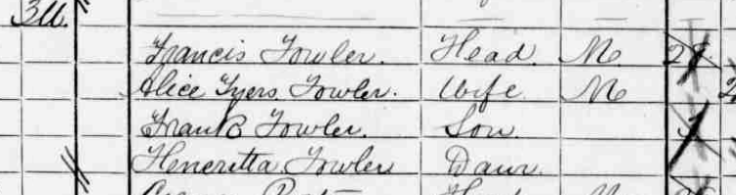 Francis Fowler. Head. M 28
Alice Tyers Fowler. Wife M
Frank Fowler. Son
Heneretta Fowler Daur.